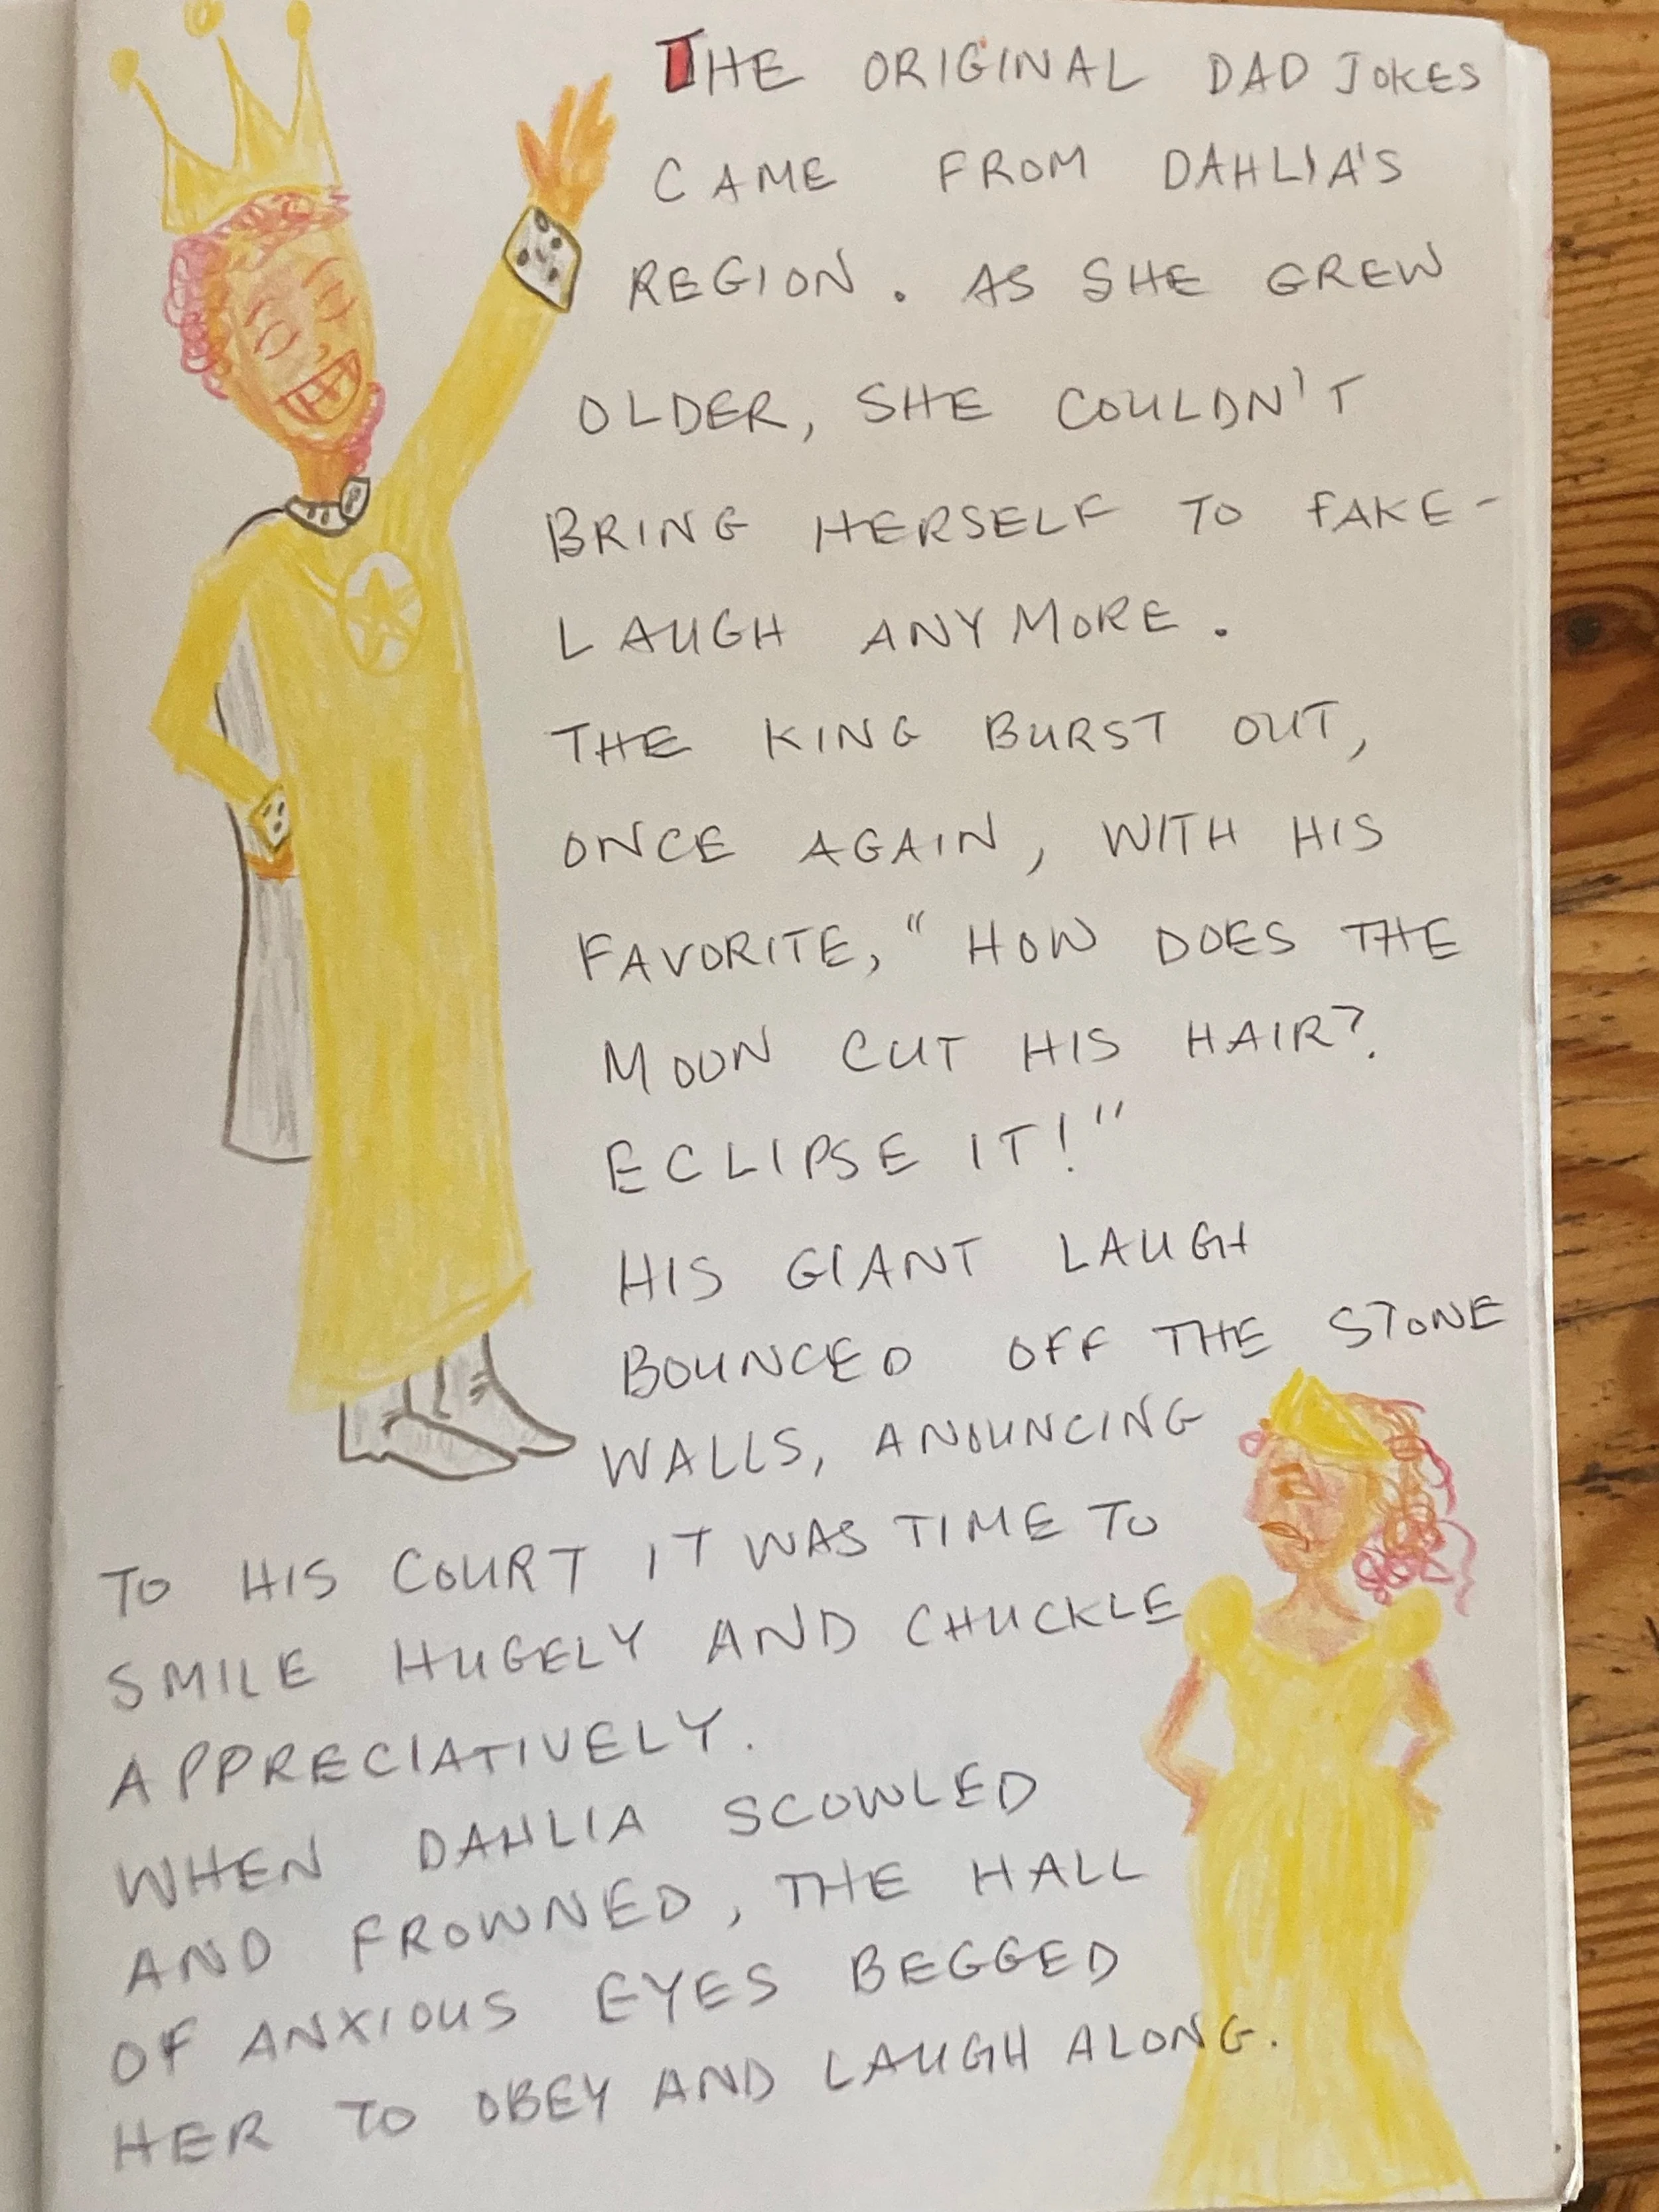 THE ORIGINAL DAD JOKES
CAME FROM DAHLIA'S
REGION. AS SHE GREW
OLDER, SHE COULDN'T
BRING HERSELF TO FAKE-
LAUGH ANYMORE.
THE KING BURST OUT,
ONCE AGAIN, WITH HIS
FAVORITE, "HOW DOES THE
MOON CUT HIS HAIR?
ECLIPSE IT!"
HIS GIANT LAUGH
BOUNCED OFF THE STONE
WALLS, ANOUNCING
TO HIS COURT IT WAS TIME TO
SMILE HUGELY AND CHUCKLE
APPRECIATIVELY.
WHEN DAHLIA SCOWLED
AND FROWNED, THE HALL
OF ANXIOUS EYES BEGGED
HER TO OBEY AND LAUGH ALONG.